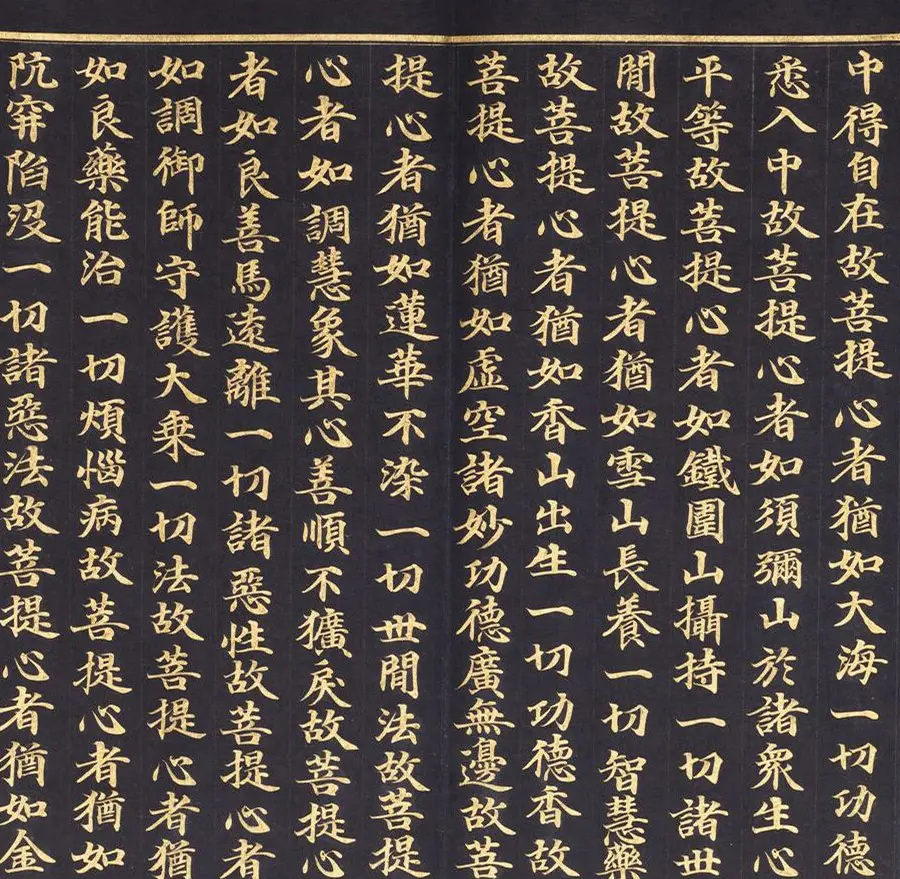 中得自在故菩提心者猶如大海一切功德
悉入中故菩提心者如須彌山於諸衆生心
平等故菩提心者如鐵圍山攝持一切諸世
間故菩提心者猶如雪山長養一切智慧藥
故菩提心者猶如香山出生一切功德香故
菩提心者猶如虛空諸妙功德廣無邊故菩
提心者猶如蓮華不染一切世間法故菩提
心者如調慧象其心善順不獷戾故菩提心
者如良善馬遠離一切諸惡性故菩提心者
如調御師守護大乗一切法故菩提心者猶
如良藥能治一切煩惱病故菩提心者猶如
阬穽陷没一切諸惡法故菩提心者猶如金